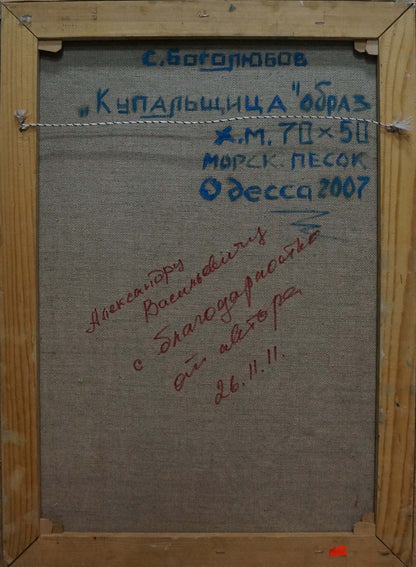 С. Боголюбов
„Купальщица" образ
х.м. 70×50
морск. песок
Одесса 2007
Александру
Васильевичу
с благодарностью
от автора
26.11.11.